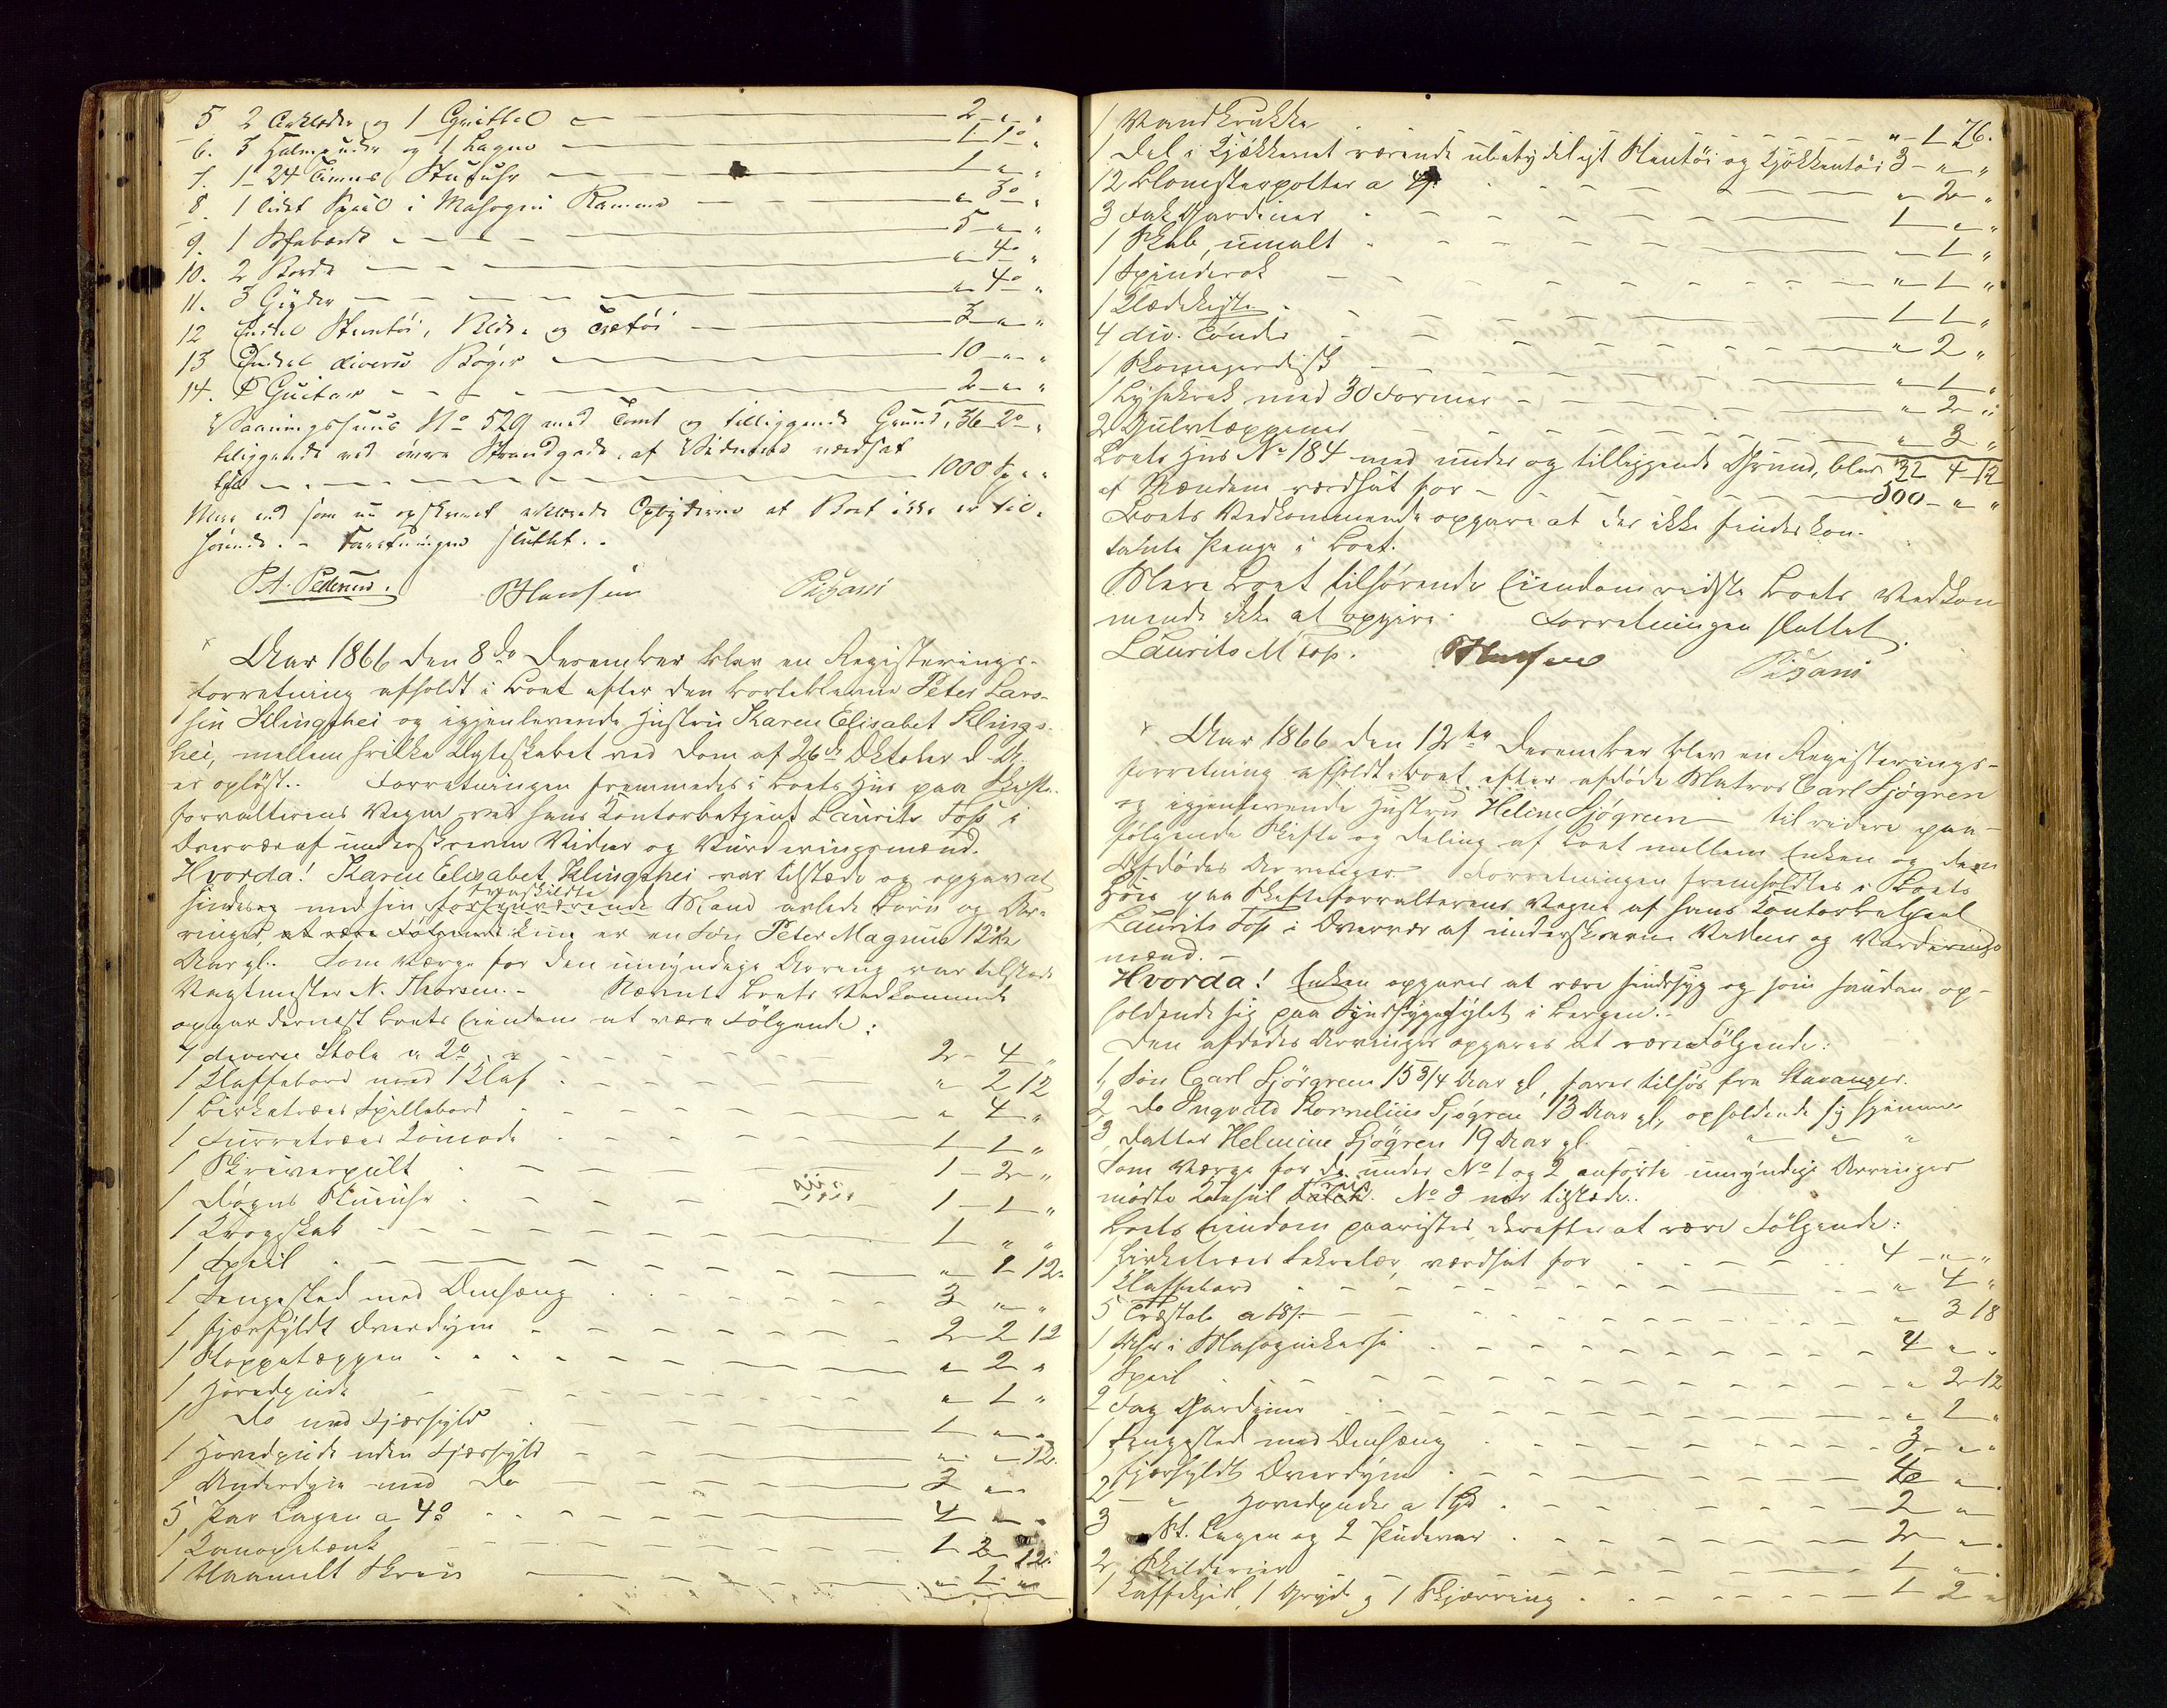 5 2 og 1 2 - " - "
6. 3 Halmpuder og 1 Lagen 1 - 1 - "
7. 1 - 24 Times Stueuhr 1 - " - "
8. 1 lidet Speil i Mahogni Ramme " - 3 - "
9. 1 5 - " - "
10. 2 Borde " - 4 - "
11. 3 Gryder " - 4 - "
12 Endel Steentöi, Blik- og Trætöi 3 - " - "
13 Endel diverse Bøger 10 - " - "
14. 1 Guitar 2 - " - "
Vaaningshuus No 529 med Tomt og tilliggende Grund, 36 - 2 - "
beliggende ved øvre Strandgade, af Vidnerne værdsat
til 1000 Sp " "
Mere end som nu opskrevet erklærede Opbyderne at Boet ikke er til-
hørende. - Forretningen sluttet. -
P. A. Pedersen. BHansen Pisani
Aar 1866 den 8de December blev en Registerings-
forretning afholdt i Boet efter den bortebleven Peter Lars-
sen Klingshei og igjenlevende Hustru Karen Elisabet Klings-
hei, mellem hvilke Ægteskabet ved Dom af 26de Oktober d. A.
er opløst. Forretningen fremmedes i Boets Hus paa Skifte-
forvalterens Vegne ved hans Kontorbetjent Laurits Foss i
Overvær af underskrevne Vidner og Vurderingsmænd.
Hvorda! Karen Elisabet Klingshei var tilstede og opgav at
hendes med sin forhenværende fraskildte Mand avlede Børn og Ar-
vinger, at være Følgende kun er en Søn Peter Magnus 12½
Aar gl. Som Værge for den umyndige Arving var tilstede
Vagtmester N. Thorsen. - Nævnte Boets Vedkommende
opgav dernæst Boets Eiendom at være Følgende:
7 diverse Stole 2 - 4 "
1 Klaffebord med 1 Klaf " 2 12
1 Birketræes Spillebord " 4 "
1 Furretræes Komode 1 - 1 "
1 Skriverpult 1 - 2 "
1 Døgns Stueuhr 1 - 1 "
1 Krogskab 1 " "
1 Speil " 1 12.
1 Sengested med Omhæng 3 " "
1 fjærfyldt Overdyne 2 - 2 12
1 Stoppetæppen " 2 "
1 Hovedpude " 1 "
1 Do med Fjærfyld 1 " "
1 Hovedpude uden Fjærfyld " " 12.
1 Underdyne med Do 3 " "
5 Par Lagen a 4 4 " "
1 Kanapebænk 1 2 12.
1 Uaamalt Skrin " 1 "
1 Vandkrukke " 1 76.
1 Del i Kjøkkenet værende ubetydeligt Stentöi og Kjøkkentöi 3 - " "
12 Blomsterpotter a 4 s " 2 "
3 Fag Gardiner 1 " "
1 Skab, umalt " 1 "
1 Spinderok " 1 "
1 Klædekiste 1 1 "
4 div. Tønder " 2 "
1 Skomagerdisk " 1 "
1 Lysekrak med 30 Former " 2 "
2 Gulvtæppener " 3 "
Boets Hus No 184 med under og tilliggende Grund, blev 32 4 12
af Mændene værdsat for 500 - " "
Boets Vedkommende opgave at der ikke findes kon-
tante Penge i Boet.
Mere Boet tilhørende Eiendom vidste Boets Vedkom
mende ikke at opgive. Forretningen sluttet.
Laurits M Foss. BHansen Pisani
Aar 1866 den 12te December blev en Registerings-
forretning afholdt i Boet efter afdøde Matros Carl Sjögren
og igjenlevende Hustru Heline Sjögreen til videre paa-
følgende Skifte og Deling af Boet mellem Enken og den
Afdødes Arvinger. Forretningen fremholdtes i Boets
Huus paa Skifteforvalterens Vegne af hans Kontorbetjent
Laurits Foss i Overvær af underskrevne Vidner og Vurderings
mænd. -
Hvorda! Enken opgaves at være sindssyg og som saadan op-
holdende sig paa Sindssygeasylet i Bergen. -
Den afdødes Arvinger opgaves at være Følgende:
1, Søn Carl Sjörgren 15 3/4 Aar gl, farer tilsøs fra Stavanger.
2, Do Ingvald Kornelius Sjøgren 13 Aar gl, opholdende sig hjemme
3, Datter Helmine Sjögren 19 Aar gl. " " "
Som Værge for de under No 1 og 2 anførte umyndige Arvinger
mødte Konsul Falck. No 3 var tilstede.
Boets Eiendom paavistes derefter at være Følgende:
1 birketræes Sekretær værdsat for 4 - " "
1 Klaffebord " 4 "
5 Træstole a 18 s " 3 18
1 Uhr i Mahognikasse 4 " "
1 Speil " 2 12
2 Fag Gardiner " 1 "
1 Sengested med Omhæng 3 - " "
2 fjærfyldte Overdyner 4 "
2 " Hovedpuder a 1 Spd 2 "
3 St. Lagen og 2 Pudevar 2 "
2 Skilderier 1 "
1 Kaffekjel, 1 Gryde og 1 Skjærring 1 2 "